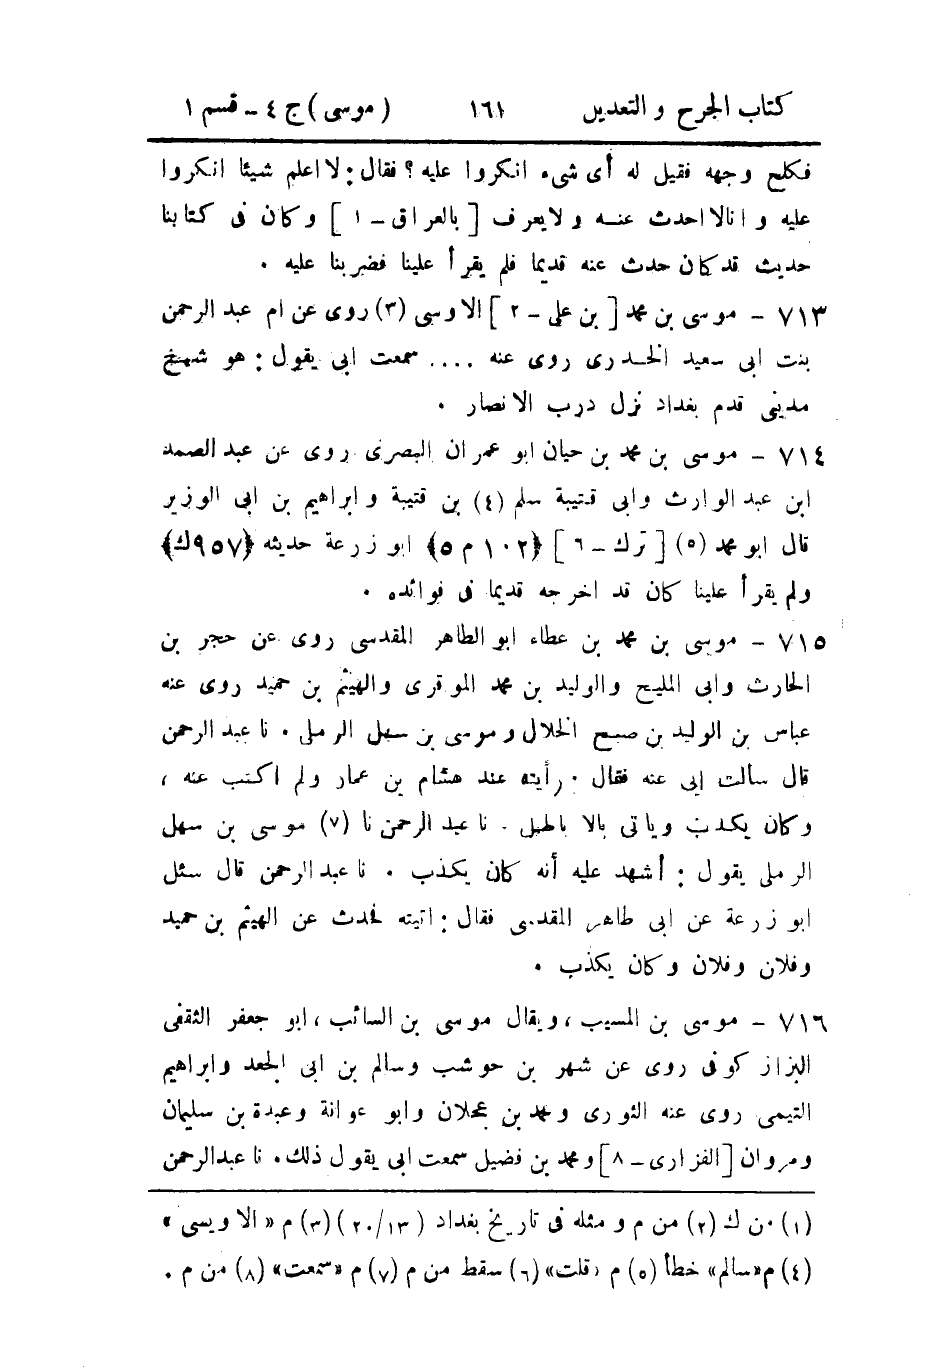 كتاب الجرح و التعديل ١٦١ ( موسى ) ج ٤ ـ قسم ١
فكلح وجهه فقيل له أى شىء انكروا عليه ؟ فقال : لا اعلم شيئا انكروا
عليه و انا لا احدث عنه ولا يعرف [ بالعراق ـ ١ ] وكان فى كتابنا
حديث قد كان حدث عنه قديما فلم يقرأ علينا فضربنا عليه .
٧١٣ ـ موسى بن محمد [ بن على ـ ٢ ] الاوسى (٣) روى عن ام عبد الرحمن
بنت ابى سعيد الخدرى روى عنه .... سمعت ابى يقول : هو شيخ
مدينى قدم بغداد نزل درب الانصار .
٧١٤ ـ موسى بن محمد بن حيان ابو عمران البصرى روى عن عبد الصمد
ابن عبد الوارث وابى قتيبة سلم (٤) بن قتيبة وابراهيم بن ابى الوزير
قال ابو محمد (٥) [ ترك ـ ٦ ] ﴿١٠٢ م ٥﴾ ابو زرعة حديثه ﴿٩٥٧ك﴾
ولم يقرأ علينا كان قد اخرجه قديما فى فوائده .
٧١٥ ـ موسى بن محمد بن عطاء ابو الطاهر المقدسى روى عن حجر بن
الحارث وابى المليح والوليد بن محمد الموقرى والهيثم بن حميد روى عنه
عباس بن الوليد بن صبح الخلال وموسى بن سهل الرملى . نا عبد الرحمن
قال سألت ابى عنه فقال . رأيته عند هشام بن عمار ولم اكتب عنه ،
وكان يكذب وياتى بالا باطيل . نا عبد الرحمن نا (٧) موسى بن سهل
الرملى يقول : أشهد عليه أنه كان يكذب . نا عبد الرحمن قال سئل
ابو زرعة عن ابى طاهر المقدسى فقال : اتيته فحدث عن الهيثم بن حميد
وفلان وفلان وكان يكذب .
٧١٦ ـ موسى بن المسيب ، ويقال موسى بن السائب ، ابو جعفر الثقفى
البزاز كوفى روى عن شهر بن حوشب وسالم بن ابى الجعد وابراهيم
التيمى روى عنه الثورى ومحمد بن عجلان وابو عوانة وعبدة بن سليمان
ومروان [ الفزارى ـ ٨ ] ومحمد بن فضيل سمعت ابى يقول ذلك . نا عبدالرحمن
(١) من ك (٢) من م و مثله فى تاريخ بغداد ( ١٣/ ٢٠) (٣) م « الاويسى »
(٤) م«سالم» خطأ (٥) م «قلت» (٦) سقط من م (٧) م «سمعت» (٨) من م .